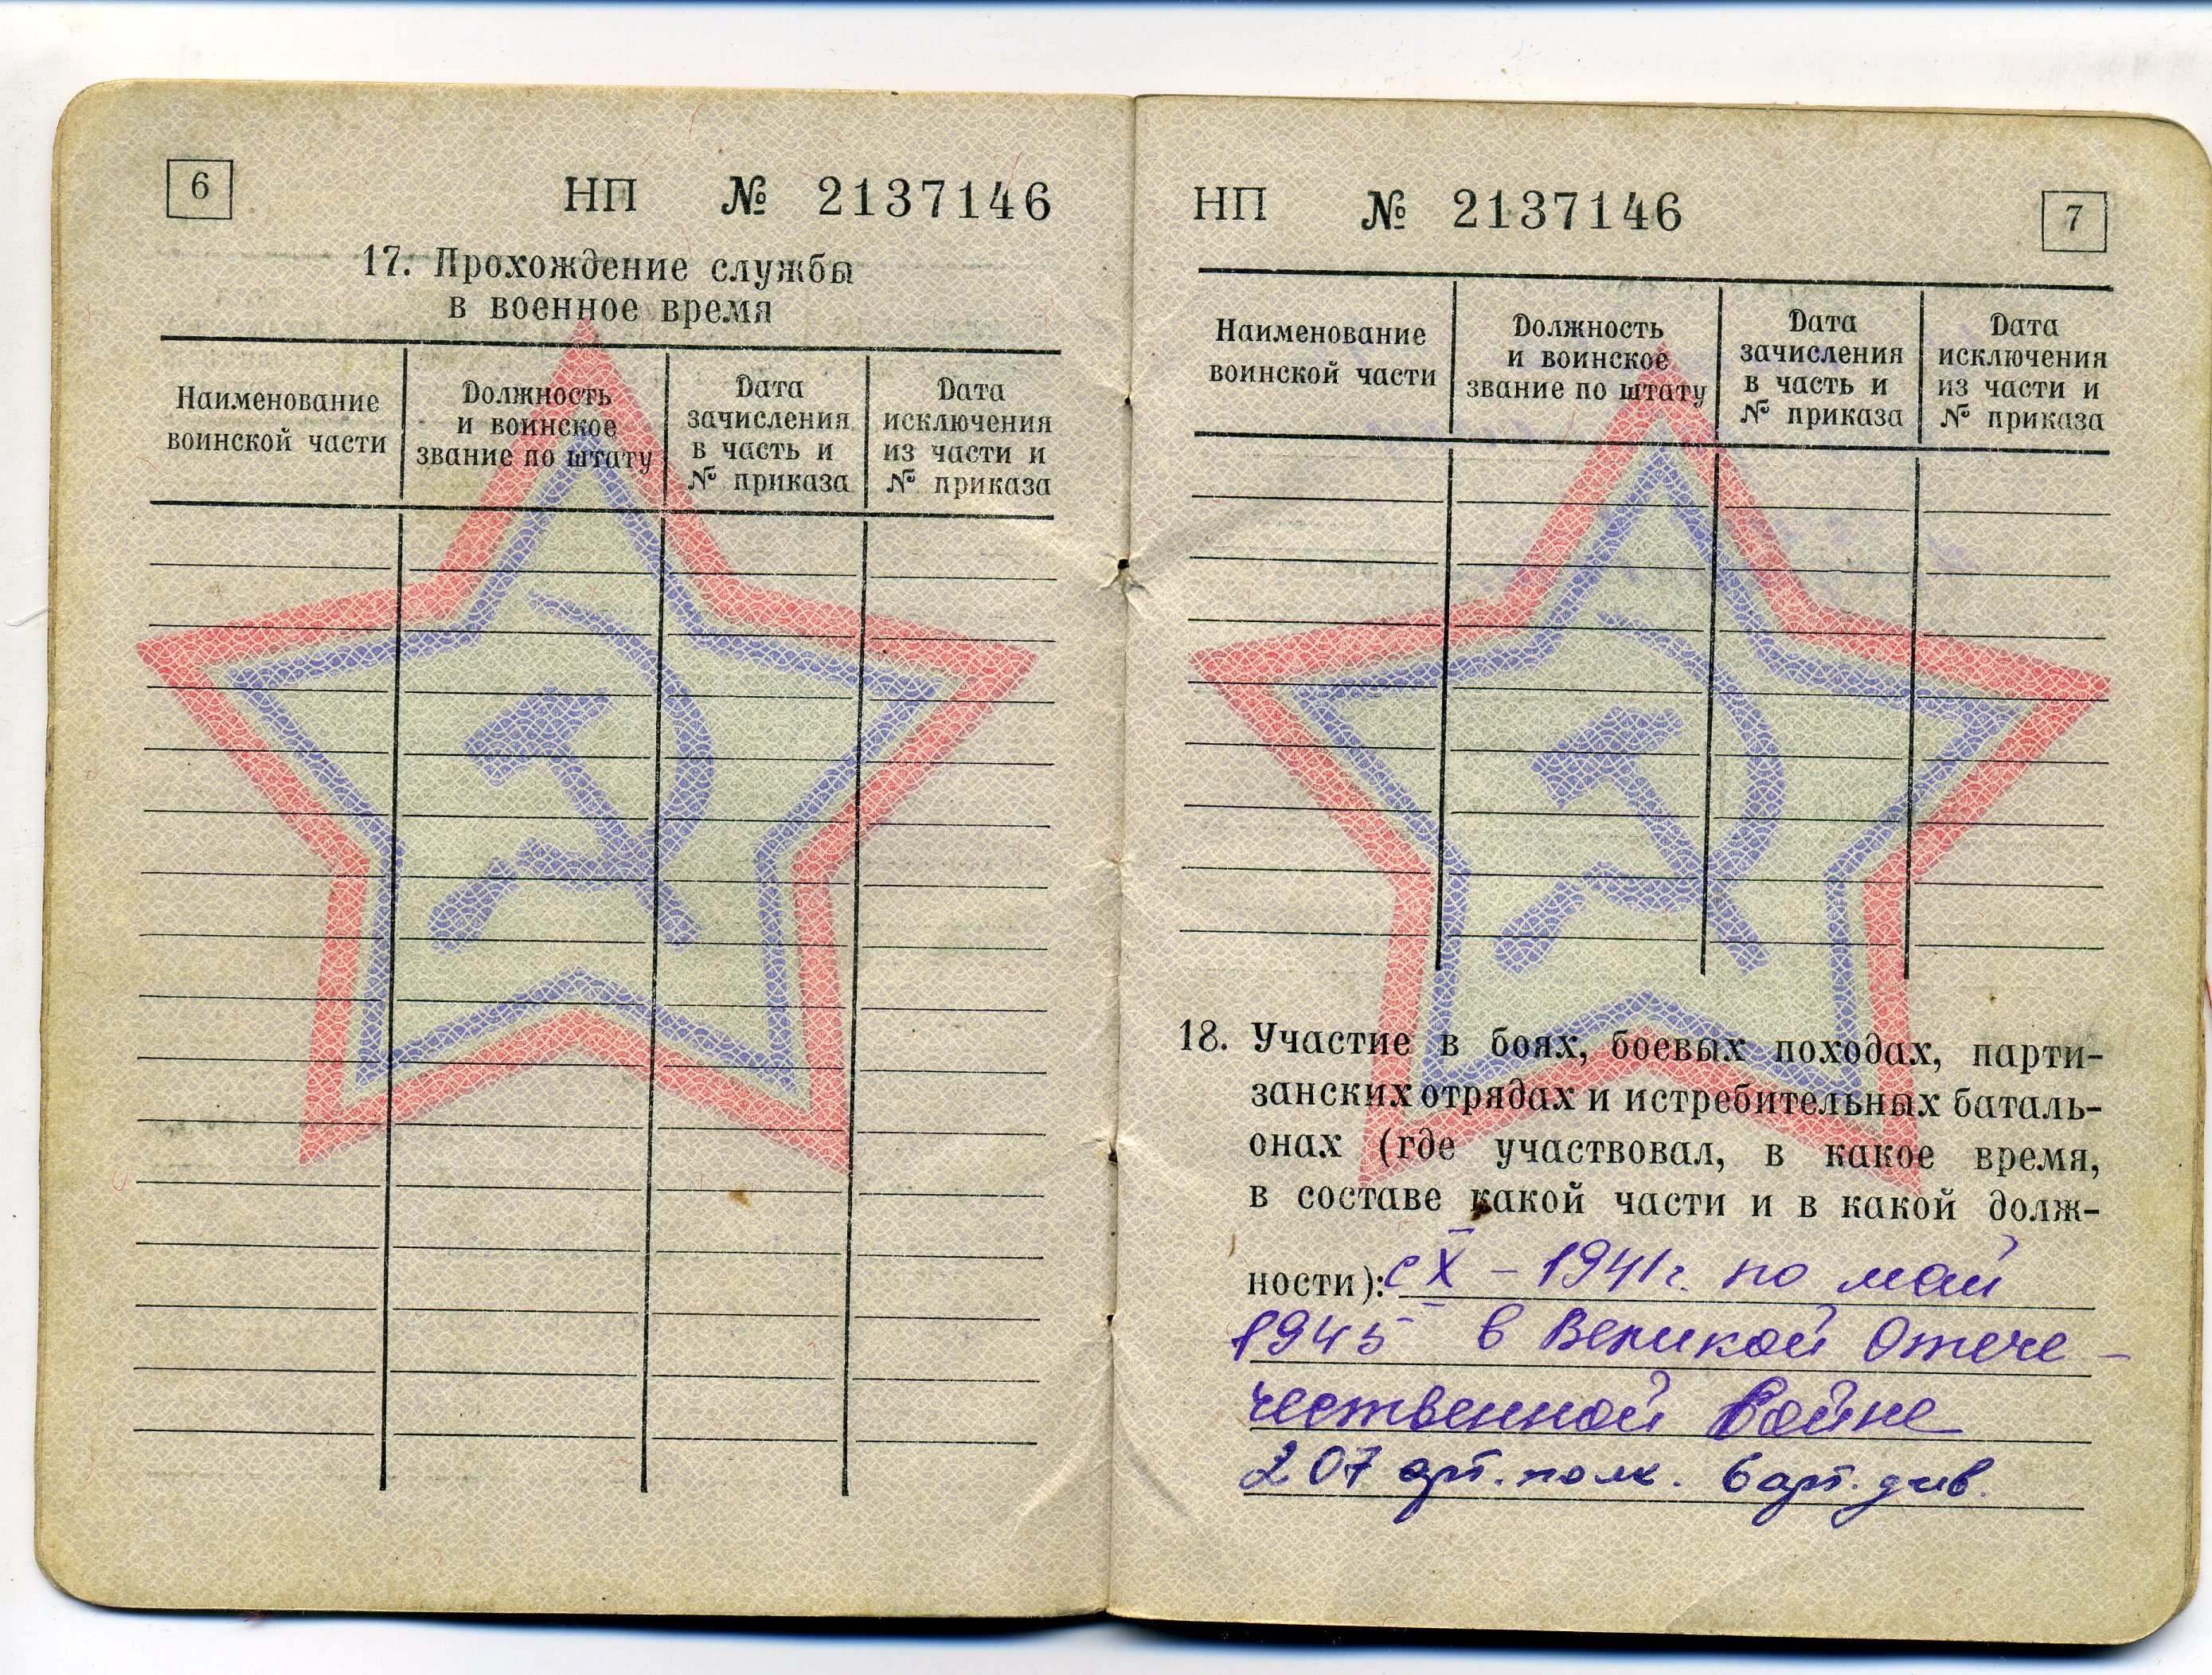 6
НП № 2137146
17. Прохождение службы
в военное время
Наименование
воинской части
Должность
и воинское
звание по штату
Дата
зачисления
в часть и
№ приказа
Дата
исключения
из части и
№ приказа
НП № 2137146
7
Наименование
воинской части
Должность
и воинское
звание по штату
Дата
зачисления
в часть и
№ приказа
Дата
исключения
из части и
№ приказа
18. Участие в боях, боевых походах, парти-
занских отрядах и истребительных баталь-
онах (где участвовал, в какое время,
в составе какой части и в какой долж-
ности): с X – 1941г. по май
1945 в Великой Отече-
чественной Войне
207 арт. полк. 6 арт. див.